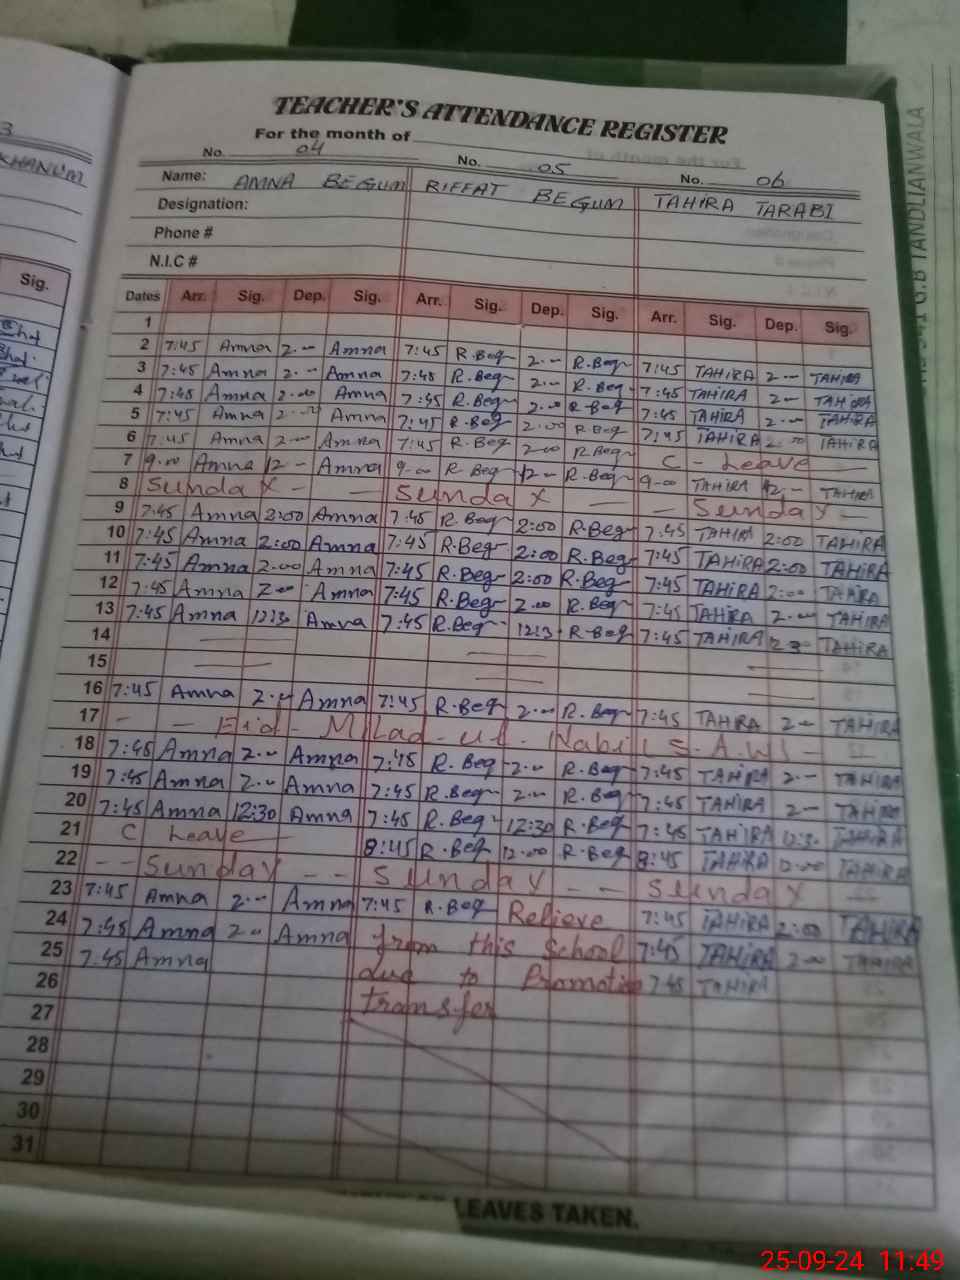 TEACHER'S ATTENDANCE REGISTER
For the month of
No. 04 No. 05 No. 06
Name: AMNA BEGUM RIFFAT BEGUM TAHIRA TARABI
Designation:
Phone #
N.I.C #
Dates Arr. Sig. Dep. Sig. Arr. Sig. Dep. Sig. Arr. Sig. Dep. Sig.
1
2 7:45 Amna 2-- Amna 7:45 R.Beg 2-- R.Beg 7:45 TAHIRA 2-- TAHIRA
3 7:45 Amna 2-- Amna 7:45 R.Beg 2-- R.Beg 7:45 TAHIRA 2-- TAHIRA
4 7:45 Amna 2.00 Amna 7:45 R.Beg 2.00 R.Beg 7:45 TAHIRA 2-- TAHIRA
5 7:45 Amna 2.00 Amna 7:45 R.Beg 2.00 R.Beg 7:45 TAHIRA 2.00 TAHIRA
6 7:45 Amna 2-- Amna 7:45 R.Beg 2.00 R.Beg C - Leave
7 9.00 Amna 12- Amna 9-00 R.Beg 12-- R.Beg 9-00 TAHIRA 12-- TAHIRA
8 Sunday - - Sunday - - Sunday -
9 7:45 Amna 2:00 Amna 7:45 R.Beg 2:00 R.Beg 7:45 TAHIRA 2:00 TAHIRA
10 7:45 Amna 2:00 Amna 7:45 R.Beg 2:00 R.Beg 7:45 TAHIRA 2:00 TAHIRA
11 7:45 Amna 2.00 Amna 7:45 R.Beg 2:00 R.Beg 7:45 TAHIRA 2:00 TAHIRA
12 7:45 Amna 2-- Amna 7:45 R.Beg 2.00 R.Beg 7:45 TAHIRA 2-- TAHIRA
13 7:45 Amna 12:30 Amna 7:45 R.Beg 12:3 R.Beg 7:45 TAHIRA TAHIRA
14
15
16 7:45 Amna 2-- Amna 7:45 R.Beg 2-- R.Beg 7:45 TAHIRA 2-- TAHIRA
17 - - Eid - Milad - ul - Nabi (S.A.W) -
18 7:45 Amna 2-- Amna 7:45 R.Beg 2-- R.Beg 7:45 TAHIRA 2-- TAHIRA
19 7:45 Amna 2-- Amna 7:45 R.Beg 2-- R.Beg 7:45 TAHIRA 2-- TAHIRA
20 7:45 Amna 12:30 Amna 7:45 R.Beg 12:30 R.Beg 7:45 TAHIRA 12:30 TAHIRA
21 C Leave 8:45 R.Beg 12.00 R.Beg 8:45 TAHIRA 12.00 TAHIRA
22 - - Sunday - - Sunday - - Sunday
23 7:45 Amna 2-- Amna 7:45 R.Beg Relieve 7:45 TAHIRA 2:00 TAHIRA
24 7:45 Amna 2-- Amna from this School 7:45 TAHIRA 2-00 TAHIRA
25 7.45 Amna due to Promotion 7:45 TAHIRA
26 transfer
27
28
29
30
31
LEAVES TAKEN.
G.B TANDLIANWALA
KHANUM
Sig.
25-09-24 11:49